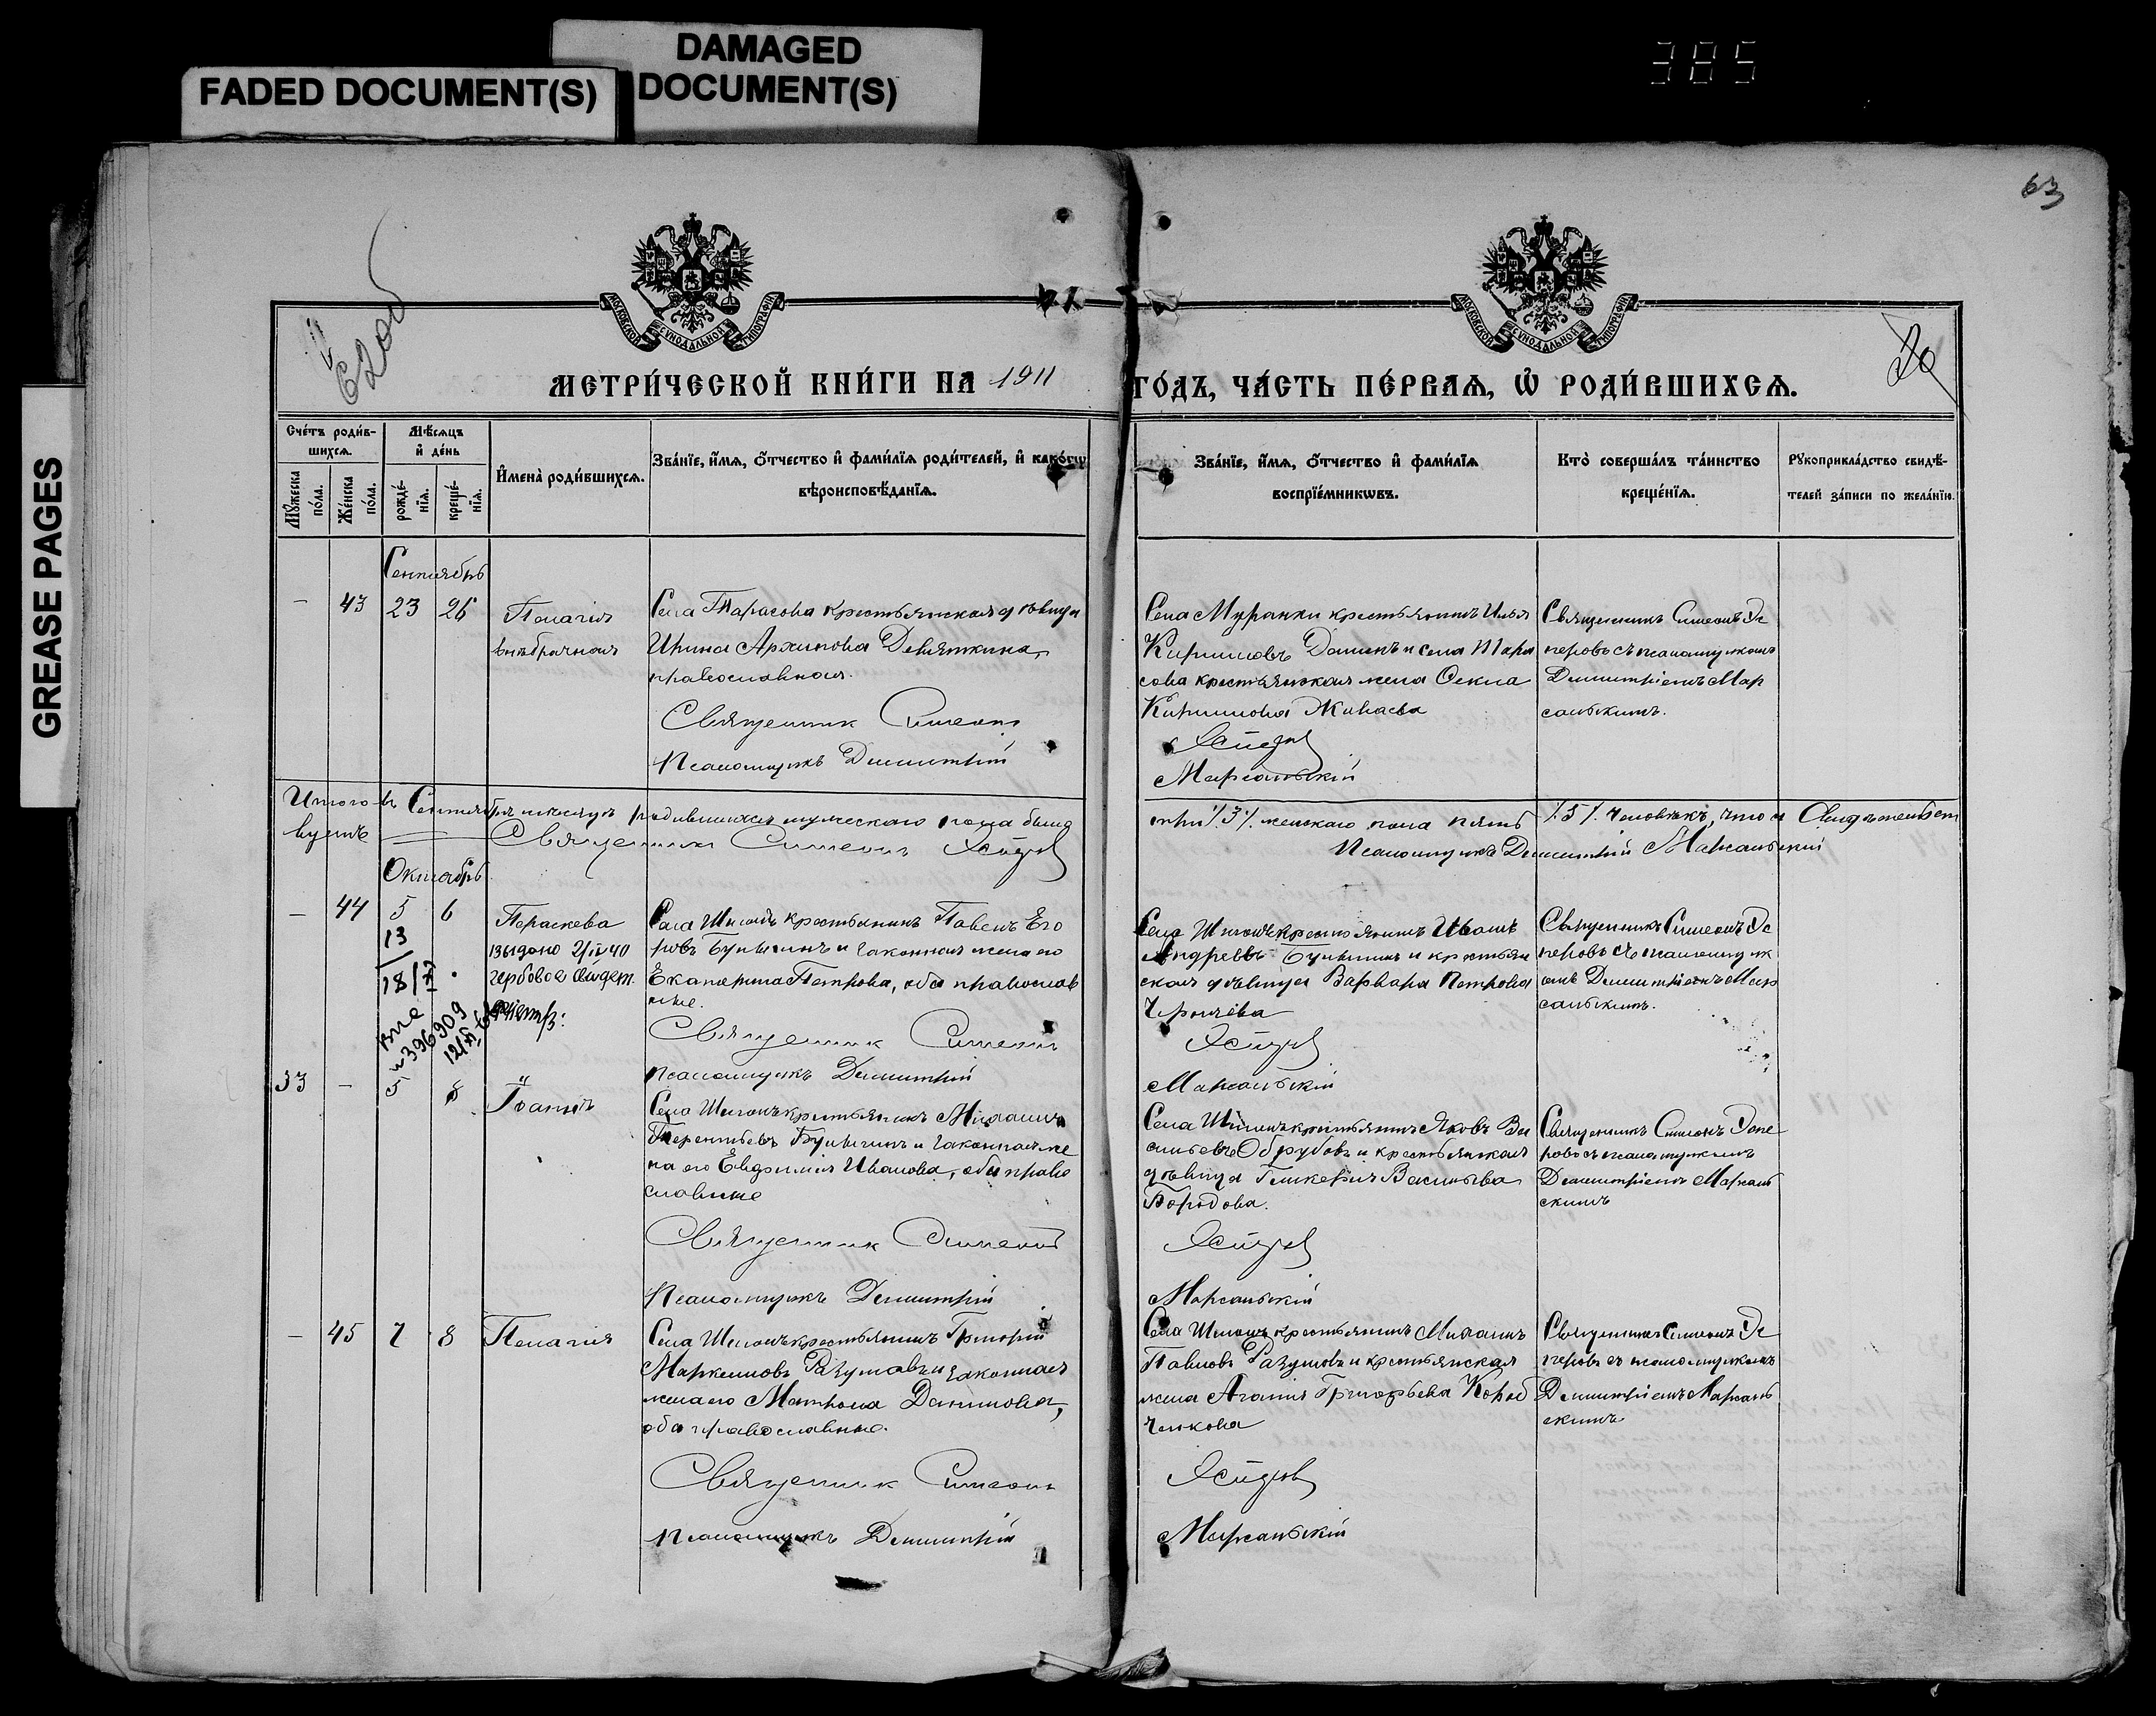 DAMAGED
DOCUMENT(S)
FADED DOCUMENT(S)
GREASE PAGES
385
63
МОСКОВСКОЙ СУНОДАЛЬНОЙ ТИПОГРАФІИ
МОСКОВСКОЙ СУНОДАЛЬНОЙ ТИПОГРАФІИ
20
МЕТРИ́ЧЕСКОЙ КНИ́ГИ НА 1911 ГО́ДЪ, ЧА́СТЬ ПЕ́РВАѦ, Ѡ РОДИ́ВШИХСѦ.
Сче́тъ роди́в-
шихсѧ.
Мꙋ́жеска по́ла.
Же́нска по́ла.
Мѣ́сѧцъ
и де́нь
рожде́-
нїѧ.
креще́-
нїѧ.
Имена̀ роди́вшихсѧ.
Зва́нїе, и́мѧ, о́тчество и фами́лїѧ роди́телей, и како́гѡ
вѣроисповѣ́данїѧ.
Зва́нїе, и́мѧ, о́тчество и фами́лїѧ
воспрїе́мникѡвъ.
Кто̀ соверша́лъ та́инство
креще́нїѧ.
Рꙋкоприкла́дство свидѣ́-
телей за́писи по жела́нїю.
Сентябрь
— 43 23 25
Пелагія
внѣбрачная
Села Тарасова крестьянская дѣвица
Ирина Архипова Девяткина,
православная.
Священник Симеонъ
Псаломщикъ Димитрій
Села Муранки крестьянинъ Илья
Кириловъ и села Тара
сова крестьянская жена Фекла
Кирилова Минаева
Яспѣров
Марсальскій
Священникъ Симеонъ Яс
перовъ съ псаломщикомъ
Димитріемъ Мар
сальскимъ.
Итого въ Сентябрѣ мѣсяцѣ родившихся мужескаго пола было
три /3/, женскаго пола пять /5/ человѣкъ, что и свидѣтельст
вуемъ
Священникъ Симеонъ Ясперов
Псаломщикъ Димитрій Марсальскій
Октябрь
— 44 5 6
13
18/X
Параскева
выдано 2/IV 40
гербовое свидет.
№396909
Села Шигонъ крестьянинъ Павелъ Его
ровъ Булыгинъ и законная жена его
Екатерина Петрова, оба православ
ные.
Священник Симеонъ
Псаломщикъ Димитрій
Села Шигонъ крестьянинъ Иванъ
Андреевъ Булыгинъ и крестьян
ская дѣвица Варвара Петрова
Ясперов
Марсальскій
Священникъ Симеонъ Яс
перовъ съ псаломщик
омъ Димитріемъ Мар
сальскимъ.
33 — 5 8
Іоаннъ
Села Шигонъ крестьянинъ Михаилъ
Терентьевъ Булыгинъ и законная же
на его Евфимія Иванова, оба право
славные
Священник Симеонъ
Псаломщикъ Димитрій
Села Шигонъ крестьянинъ Яковъ Ва
сильевъ Обрубовъ и крестьянская
дѣвица Гликерія Васильева
Бородова.
Ясперов
Марсальскій
Священникъ Симеонъ Яспе
ровъ съ псаломщикомъ
Димитріемъ Марсаль
скимъ
— 45 7 8
Пелагія
Села Шигонъ крестьянинъ Григорій
Маркеловъ Разумовъ и законная
жена его Матрона Данилова,
оба православные.
Священник Симеонъ
Псаломщикъ Димитрій
Села Шигонъ крестьянинъ Михаилъ
Павловъ Разумовъ и крестьянская
жена Агапія Григорьева Короб
ченкова
Ясперов
Марсальскій
Священникъ Симеонъ Яс
перовъ съ псаломщикомъ
Димитріемъ Марсаль
скимъ